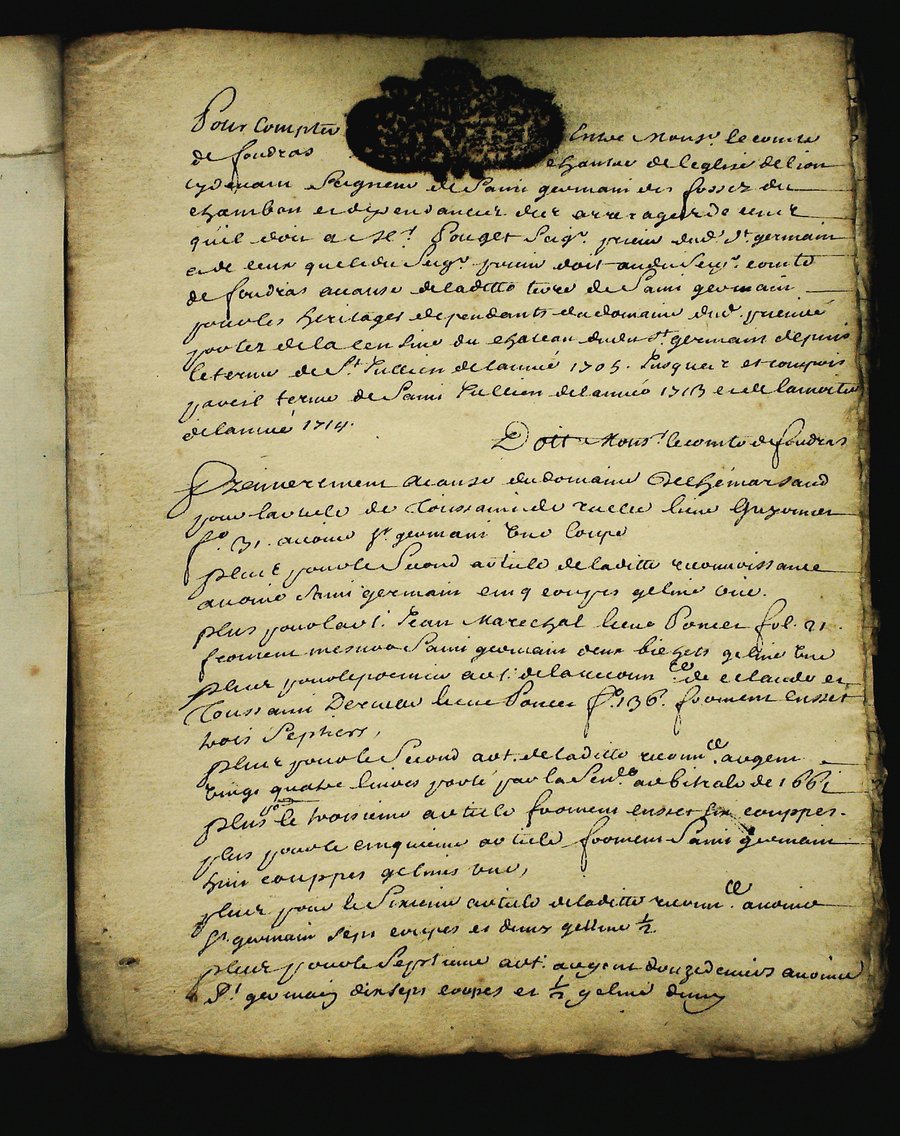 Pour Compter Entre Monsr. le comte
de foudras chantre de leglise de lion
cydevant Seigneur de Saint germain des fossez du
chambon et dependances des arrerages de cens
qu'il doit a Mr. Pouget Seigr. prieur dud. St. germain
et de ceux que ledit Seigr. prieur doit audit Seigr. comte
de foudras a cause de laditte terre de Saint germain
pour les heritages dependants du domaine dud. prieuré
portez de la censive du chateau dudit St. germain depuis
le terme de St. Jullien de lannée 1705. Jusques et compris
pareil terme de Saint Jullien de lannée 1713 et de la moitié
de lannée 1714.
Doit Monsr. le comte de foudras
Premierement a cause du domaine
pour larticle de Toussaint de lieve
fo. 31. avoine St. germain une Coupe
plus pour le Second article de laditte reconnoissance
avoine Saint germain cinq coupes geline une.
plus pour lart. Jean Marechal lieve Poncet fol. 21.
froment mesure Saint germain deux bichets geline une
plus pour le premier art. de la reconn.ce de claude et
Toussaint lieve Poncet fo. 136. froment Censet
trois Septiers,
plus pour le Second art. de laditte reconn.ce argent
vingt quatre livres porté par la Sen.ce arbitrale de 1661
plus po. le troisieme article froment censet six couppes.
plus pour le cinquieme article froment Saint germain
huit couppes gelines une,
plus pour le Sixieme article de laditte reconn.ce avoine
St. germain sept coupes et deux geline ½
plus pour le Septieme art. argent douze deniers avoine
St. germain dix sept coupes et ½ geline demy